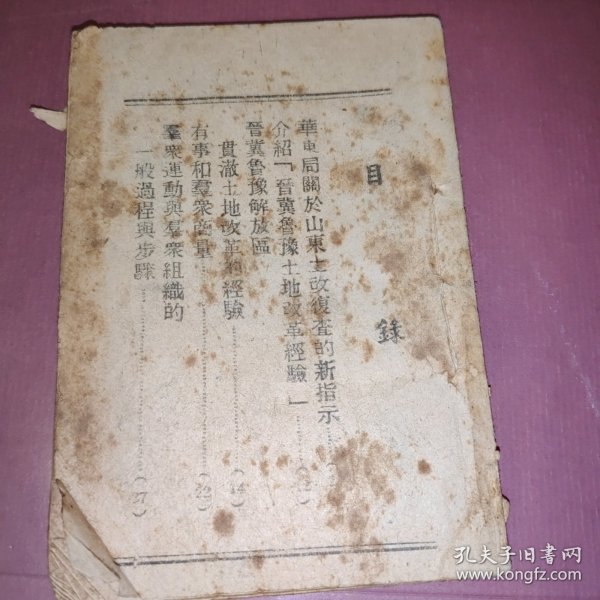 目錄
華東局關於山東土改復查的新指示
介紹「晉冀魯豫土地改革經驗」
晉冀魯豫解放區
貫澈土地改革的經驗……(14)
有事和羣衆商量……(22)
羣衆運動與羣衆組織的
一般過程與步驟……(27)
孔夫子旧书网
www.kongfz.com